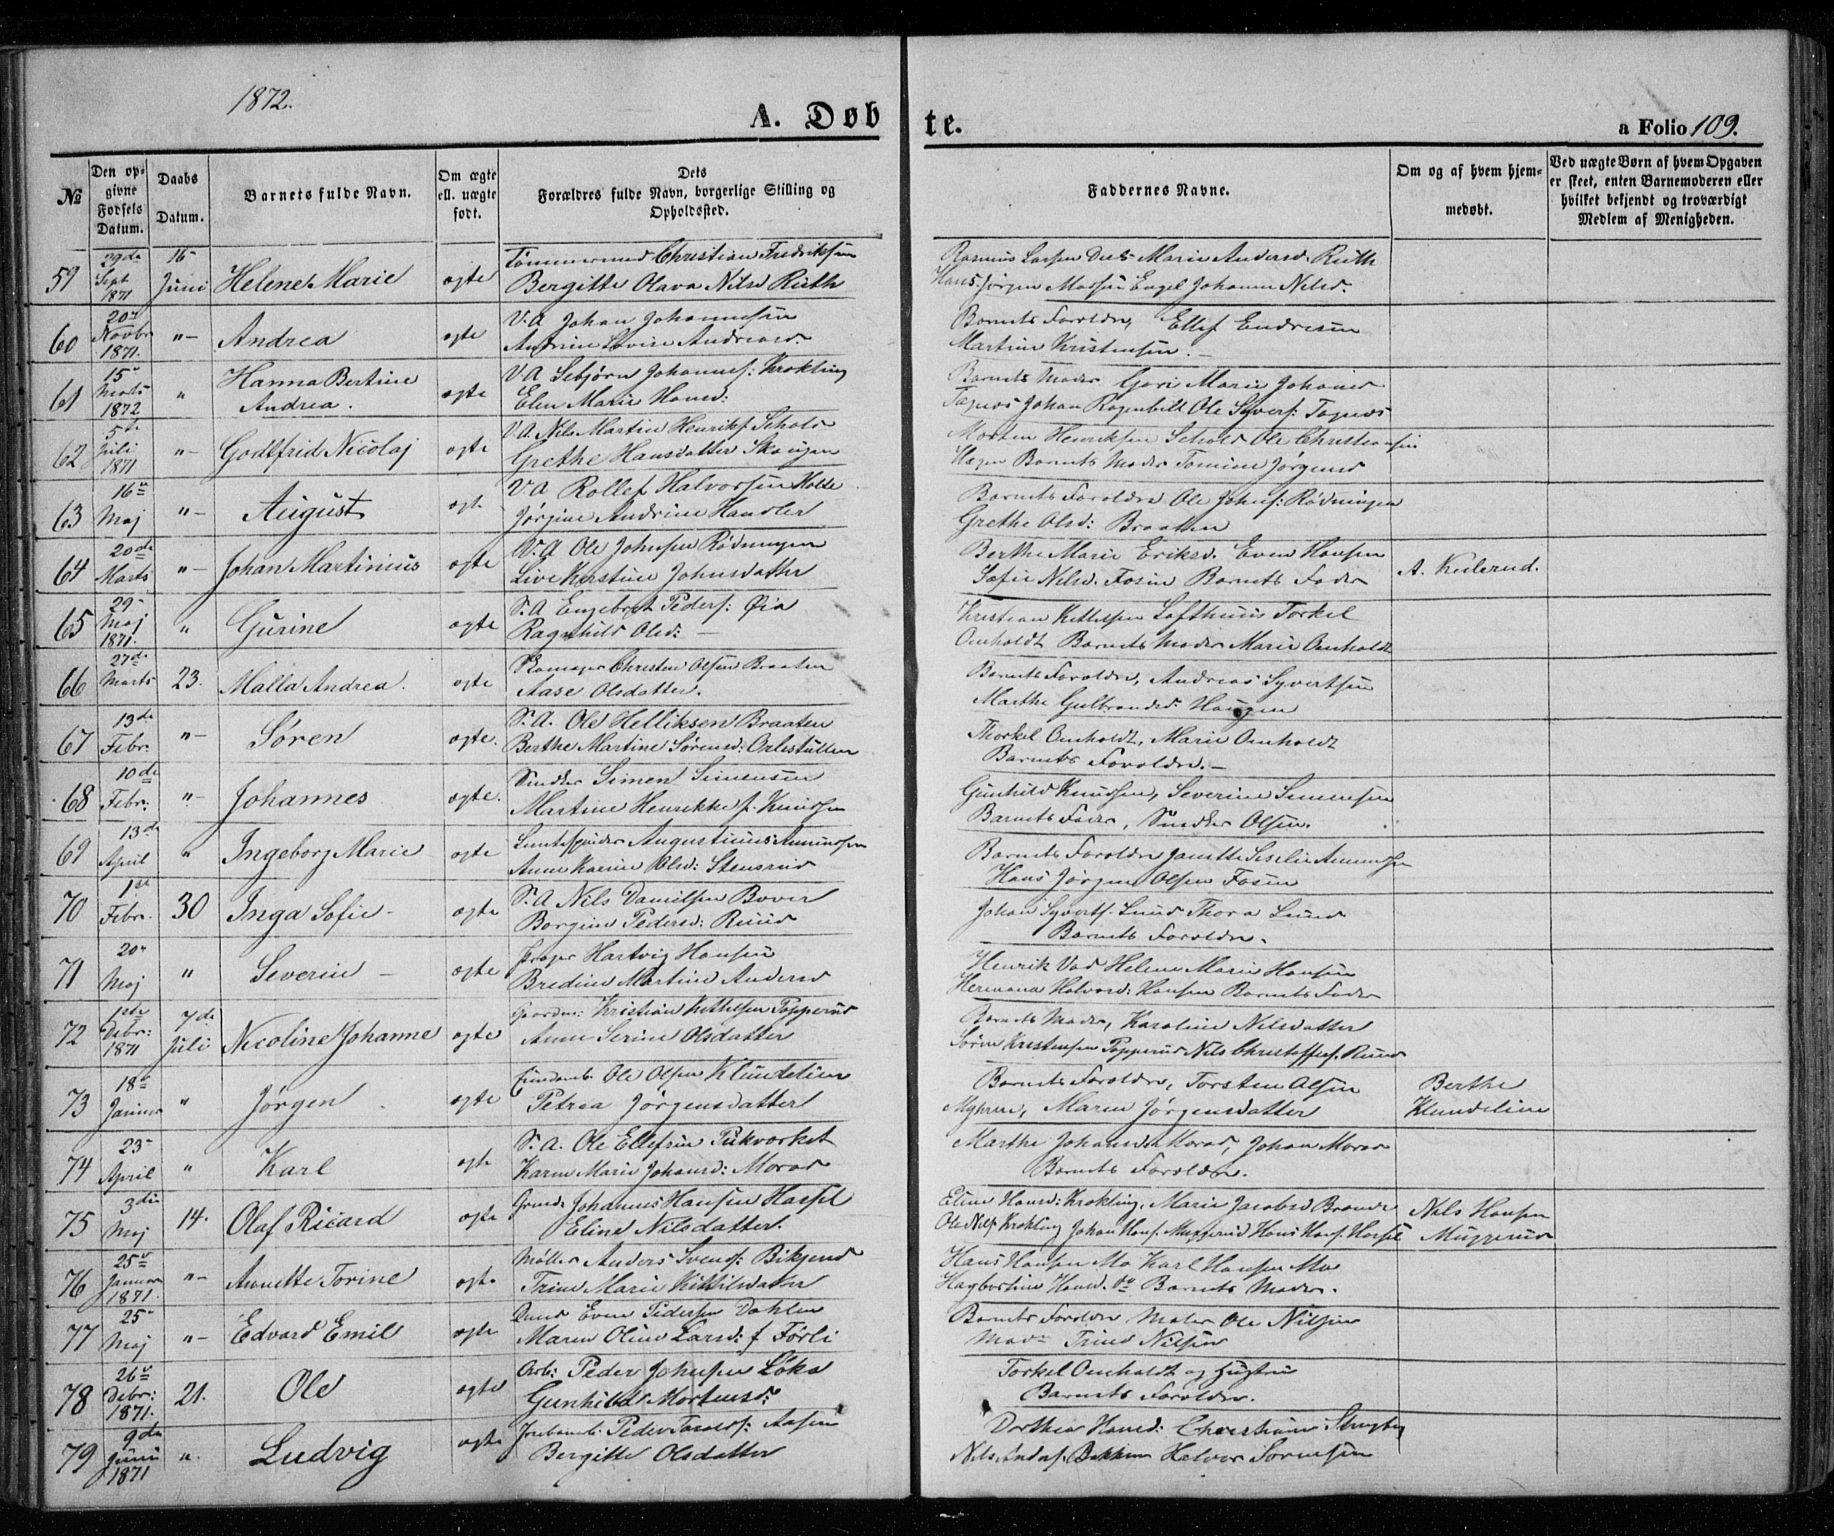 1872.
A. Døbte.
a Folio 109.
№
Den opgivne Fødsels Datum.
Daabs Datum.
Barnets fulde Navn.
Om ægte ell. uægte født.
Dets Forældres fulde Navn, borgerlige Stilling og Opholdssted.
Faddernes Navne.
Om og af hvem hjemmedøbt.
Ved uægte Børn af hvem Opgaven er skeet, enten Barnemoderen eller hvilket bekjendt og troværdigt Medlem af Menigheden.
59 29de Sept 1871 16 Juni Helene Marie ægte Tømmermand Christian Fredriksen
Bergitte Olava Nilsd Ruth
Rasmus Larsen Marie Andersd. Ruth
Hans Jørgen Engel Johanne Nilsd.
60 20 Novbr 1871. "– Andrea ægte V.A Johan Johannesen
Andrine Lovise Andreasd.
Barnets Forældre, Ellef Endresen
Martine Kristensen.
61 15 Marts 1872 " Hanna Bertine Andrea. ægte V.A Sebjørn Johannes: Krokling
Elen Marie Hansd:
Barnets Moder Gori Marie Johansd
Johan Ole Syvers:
62 5te Juli 1871 "– Godtfrid Nicolaj ægte V.A. Nils Martin Henriks. Schols
Grethe Hansdatter Skougen
Morten Henriksen Schols Ole Christiansen
Hagen Barnets Moder Tomine Jørgensd
63 16 Maj "– August ægt. V.A Rollef Halvorsen Holte
Jørgine Andrine Handler
Barnets Forældre Ole Johns: Rødningen
Grethe Olsd: Braatten
64 20de Marts "– Johan Martinius ægte V.A Ole Johnsen Rødningen
Live Kerstine Johnsdatter
Berthe Marie Eriksd. Even Hansen
Sofie Nilsd. Fosen Barnets Fader
A. Kulerud.
65 29 Maj 1871. " Gurine ægte S.A Engebret Peders: Øia
Ragnhild Olsd: –
Kristian Kittelsen Lofthuus Torkel
Omholdt Barnets Moder Marie Omholdt
66 27de Marts 23. Malla Andrea. ægte Skomager Christen Olsen Braaten
Aase Olsdatter.
Barnets Forældre, Andreas Syvertsen
Marthe Gulbrandsd. Haugen
67 13de Febr. "– Søren ægte. S.A. Ole Helliksen Braaten
Berthe Martine Sørensd:
Thorkel Omholdt, Marie Omholdt
Barnets Forældre. –
68 10de Febr: "– Johannes ægte. Snedker Simen Simensen
Martine Henrikke f. Knudsen
Gunhild Knudsen, Severine Simensen
Barnets Fader, Snedker Olsen.
69 13de April " Ingeborg Marie ægte Augustinus Amundsen
Anne Karine Olsd: Stensrud
Barnets Forældre Janette Seselie Amundsen
Hans Jørgen Olsen Fosen
70 1ste Febr. 30 Inga Sofie – ægte S.A Nils Danielsen Bover
Borgine Pedersd: Ruud
Johan Syverts. Lund Thora Lund
Barnets Forældre.
71 20 Maj " Severin – ægte Hartvig Hansen
Bredine Martine Andersd
Henrik Vad Helene Marie Hansen
Hermana Halvorsd: Hansen Barnets Fader
72 1ste Debr: 1871 7de Juli Nicoline Johanne ægte Gaardm: Kristian Kittelsen Popperud
Anne Serine Olsdatter
Barnets Moder, Karoline Nilsdatter
Søren Kristensen Popperud Nils Christoffers. Ruud
73 18 Januar " Jørgen ægte Ole Olsen Klundelien
Petrea Jørgensdatter
Barnets Forældre, Torsten Olsen
Myhren, Maren Jørgensdatter
Berthe Klundelien
74 23 April " Karl ægte S.A. Ole Ellefsen Pukværket
Karen Marie Johansd: Morad
Marthe Johansd Morad, Johan Morad
Barnets Forældre.
75 3die Maj 14. Olaf Ricard ægte Johannes Hansen Hassel
Eline Nilsdatter.
Eline Hansd: Krokling, Marie Jacobsd
Ole Nils. Krokling Johan Hans. Muggerud Hans Hans. Hassel
Nils Hansen Muggerud
76 25 Januar 1871. "– Annette Torine ægte Møller Anders Svends: Bikjend
Trine Marie Kittilsdatter
Hans Hansen Mo Karl Hansen Mo
Hagbertine Hansd. do Barnets Moder.
77 25 Maj "– Edvard Emil ægte Even Pedersen Dahlen
Maren Oline Larsd: f Førli
Barnets Forældre Maler Ole Nilsen
Mad: Trine Nilsen
78 26 Debr: 1871. 21. Ole ægte Arb: Peder Johnsen Løka
Gunhild Mortensd:
Torkel Omholdt og Hustru
Barnets Forældre.
79 9de Juni 1871 ". Ludvig ægte Peder Aasen
Bergitte Olsdatter
Dorthea Hansd: Christiane
Nils Anders. Bakken Halvor Sørensen